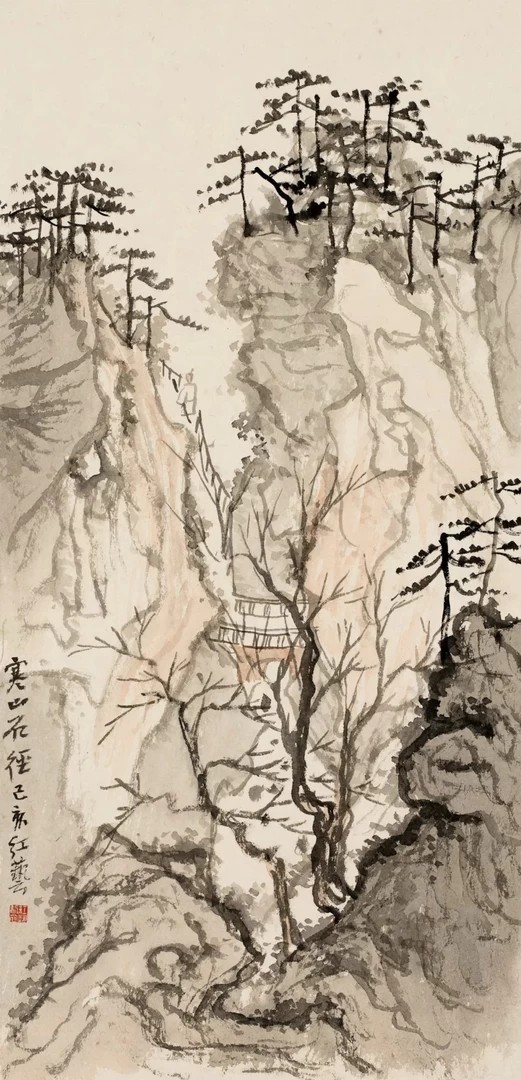 寒山石径己亥红艺